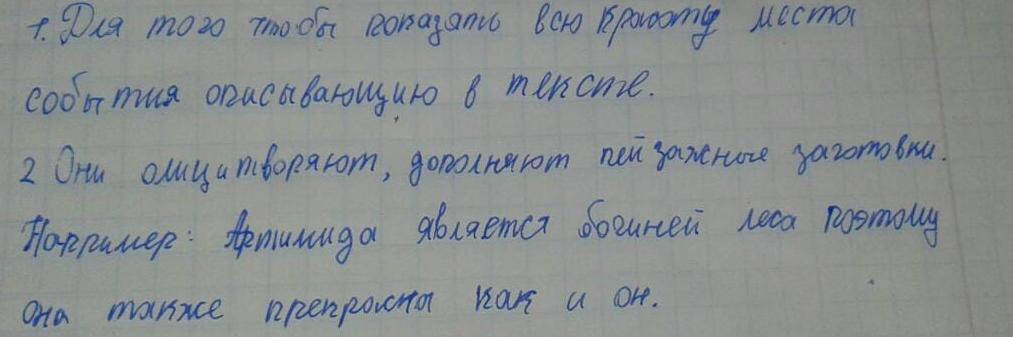 1. Для того чтобы показать всю красоту места
события описывающию в тексте.
2 Они олицитворяют, дополняют пейзажные заготовки.
Например: Артимида является богиней леса поэтому
она также прекрасна как и он.